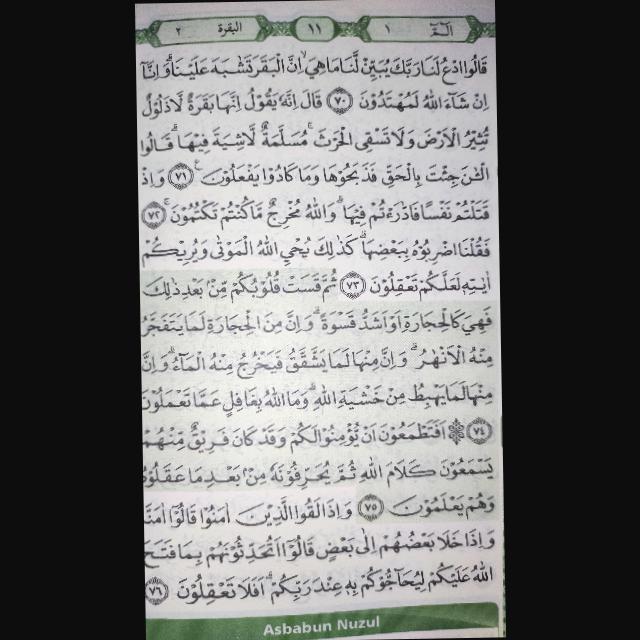 الۤمّۤ ١ ١١ البقرة ٢
قَالُوا ادْعُ لَنَا رَبَّكَ يُبَيِّنْ لَّنَا مَا هِيَۙ اِنَّ الْبَقَرَ تَشٰبَهَ عَلَيْنَاۗ وَاِنَّآ
اِنْ شَاۤءَ اللّٰهُ لَمُهْتَدُوْنَ ﴿٧٠﴾ قَالَ اِنَّهٗ يَقُوْلُ اِنَّهَا بَقَرَةٌ لَّا ذَلُوْلٌ
تُثِيْرُ الْاَرْضَ وَلَا تَسْقِى الْحَرْثَۚ مُسَلَّمَةٌ لَّاشِيَةَ فِيْهَاۗ قَالُوا
الْـٰٔنَ جِئْتَ بِالْحَقِّ فَذَبَحُوْهَا وَمَا كَادُوْا يَفْعَلُوْنَࣖ ﴿٧١﴾ وَاِذْ
قَتَلْتُمْ نَفْسًا فَادّٰرَءْتُمْ فِيْهَاۗ وَاللّٰهُ مُخْرِجٌ مَّا كُنْتُمْ تَكْتُمُوْنَۚ ﴿٧٢﴾
فَقُلْنَا اضْرِبُوْهُ بِبَعْضِهَاۗ كَذٰلِكَ يُحْيِ اللّٰهُ الْمَوْتٰى وَيُرِيْكُمْ
اٰيٰتِهٖ لَعَلَّكُمْ تَعْقِلُوْنَ ﴿٧٣﴾ ثُمَّ قَسَتْ قُلُوْبُكُمْ مِّنْۢ بَعْدِ ذٰلِكَ
فَهِيَ كَالْحِجَارَةِ اَوْ اَشَدُّ قَسْوَةًۗ وَاِنَّ مِنَ الْحِجَارَةِ لَمَا يَتَفَجَّرُ
مِنْهُ الْاَنْهٰرُۗ وَاِنَّ مِنْهَا لَمَا يَشَّقَّقُ فَيَخْرُجُ مِنْهُ الْمَاۤءُۗ وَاِنَّ
مِنْهَا لَمَا يَهْبِطُ مِنْ خَشْيَةِ اللّٰهِۗ وَمَا اللّٰهُ بِغَافِلٍ عَمَّا تَعْمَلُوْنَ
﴿٧٤﴾ ۞ اَفَتَطْمَعُوْنَ اَنْ يُّؤْمِنُوْا لَكُمْ وَقَدْ كَانَ فَرِيْقٌ مِّنْهُمْ
يَسْمَعُوْنَ كَلَامَ اللّٰهِ ثُمَّ يُحَرِّفُوْنَهٗ مِنْۢ بَعْدِ مَا عَقَلُوْهُ
وَهُمْ يَعْلَمُوْنَ ﴿٧٥﴾ وَاِذَا لَقُوا الَّذِيْنَ اٰمَنُوْا قَالُوْٓا اٰمَنَّا
وَاِذَا خَلَا بَعْضُهُمْ اِلٰى بَعْضٍ قَالُوْٓا اَتُحَدِّثُوْنَهُمْ بِمَا فَتَحَ
اللّٰهُ عَلَيْكُمْ لِيُحَاۤجُّوْكُمْ بِهٖ عِنْدَ رَبِّكُمْۗ اَفَلَا تَعْقِلُوْنَ ﴿٧٦﴾
Asbabun Nuzul